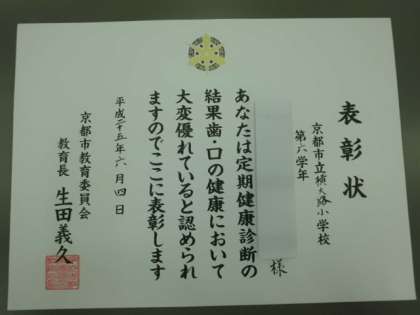 表彰状
京都市立横大路小学校
第六学年
様
あなたは定期健康診断の
結果歯・口の健康において
大変優れていると認められ
ますのでここに表彰します
平成二十五年六月四日
京都市教育委員会
教育長 生田義久